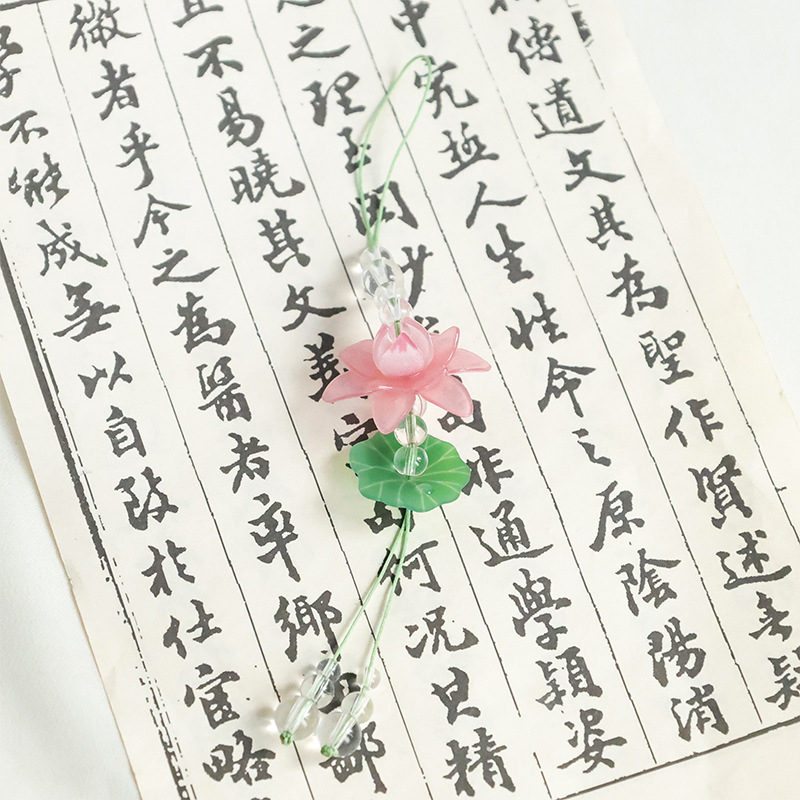 傳遺文其為聖作賢述无
中究極人生性命之原陰陽消
之理玉妙句作通學穎姿
且不易曉其文義何況且精
微者乎今之為醫者率鄉里鄙
學不能成無以自致於仕宦略